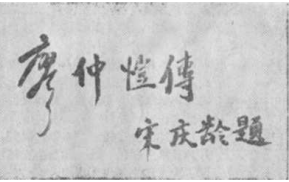 廖仲恺傳
宋庆龄題